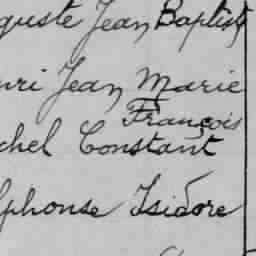 guste Jean Baptist
nri Jean Marie
François
chel Constant
lphonse Isidore